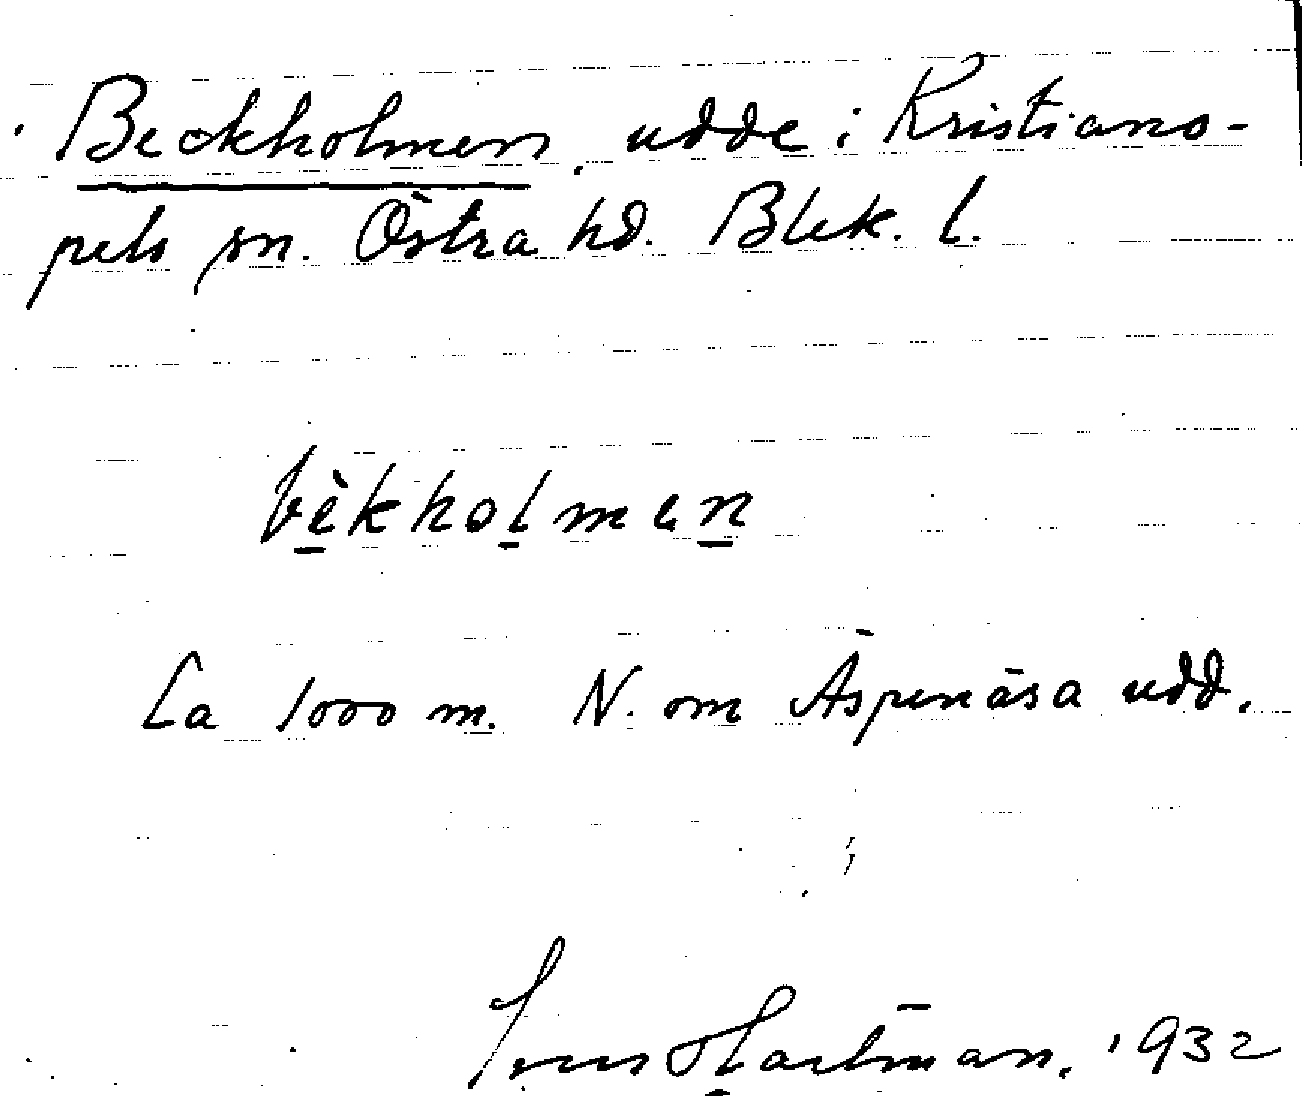 Beckholmen, udde i Kristiano-
pels sn. Östra hd. Blek. l.
bèkholmen
Ca 1000 m. N. om Äspenäsa udd.
Hartman. 1932